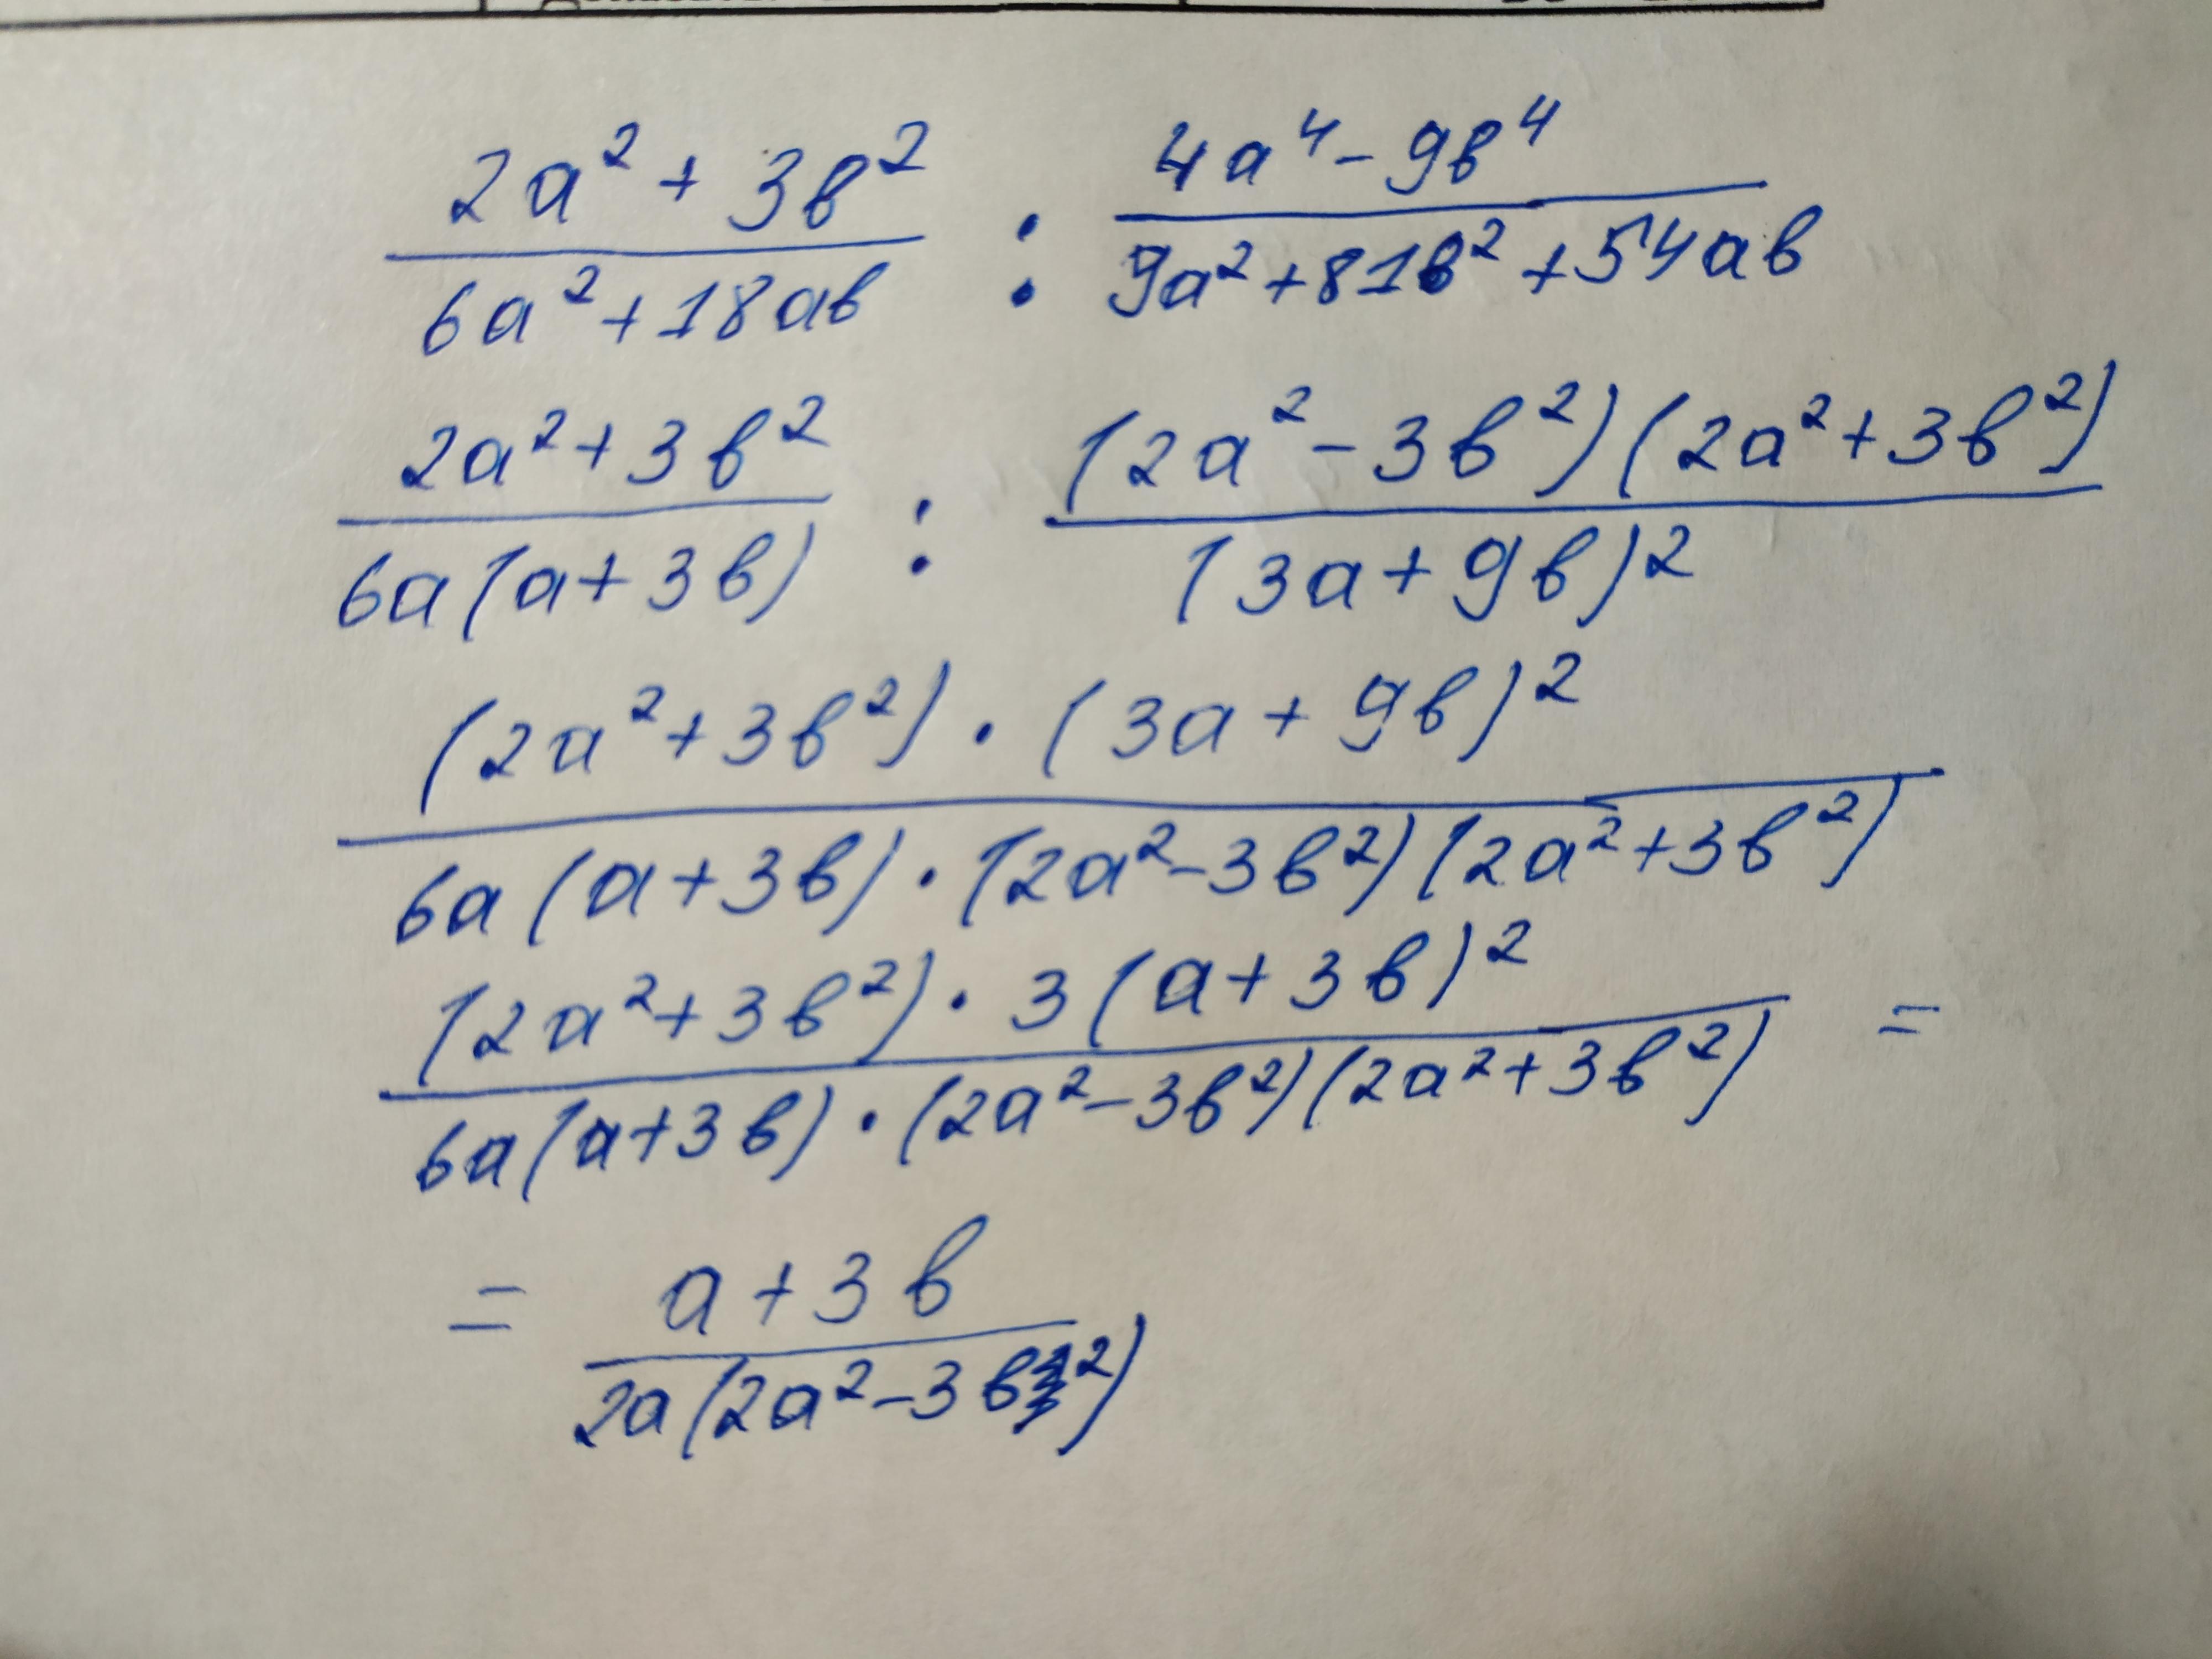 2a² + 3в² / 6a² + 18aв : 4a⁴ - 9в⁴ / 9a² + 81в² + 54aв
2a² + 3в² / 6a(a + 3в) : (2a² - 3в²)(2a² + 3в²) / (3a + 9в)²
(2a² + 3в²) · (3a + 9в)² / 6a(a + 3в) · (2a² - 3в²)(2a² + 3в²)
(2a² + 3в²) · 3(a + 3в)² / 6a(a + 3в) · (2a² - 3в²)(2a² + 3в²) =
= a + 3в / 2a(2a² - 3в²)